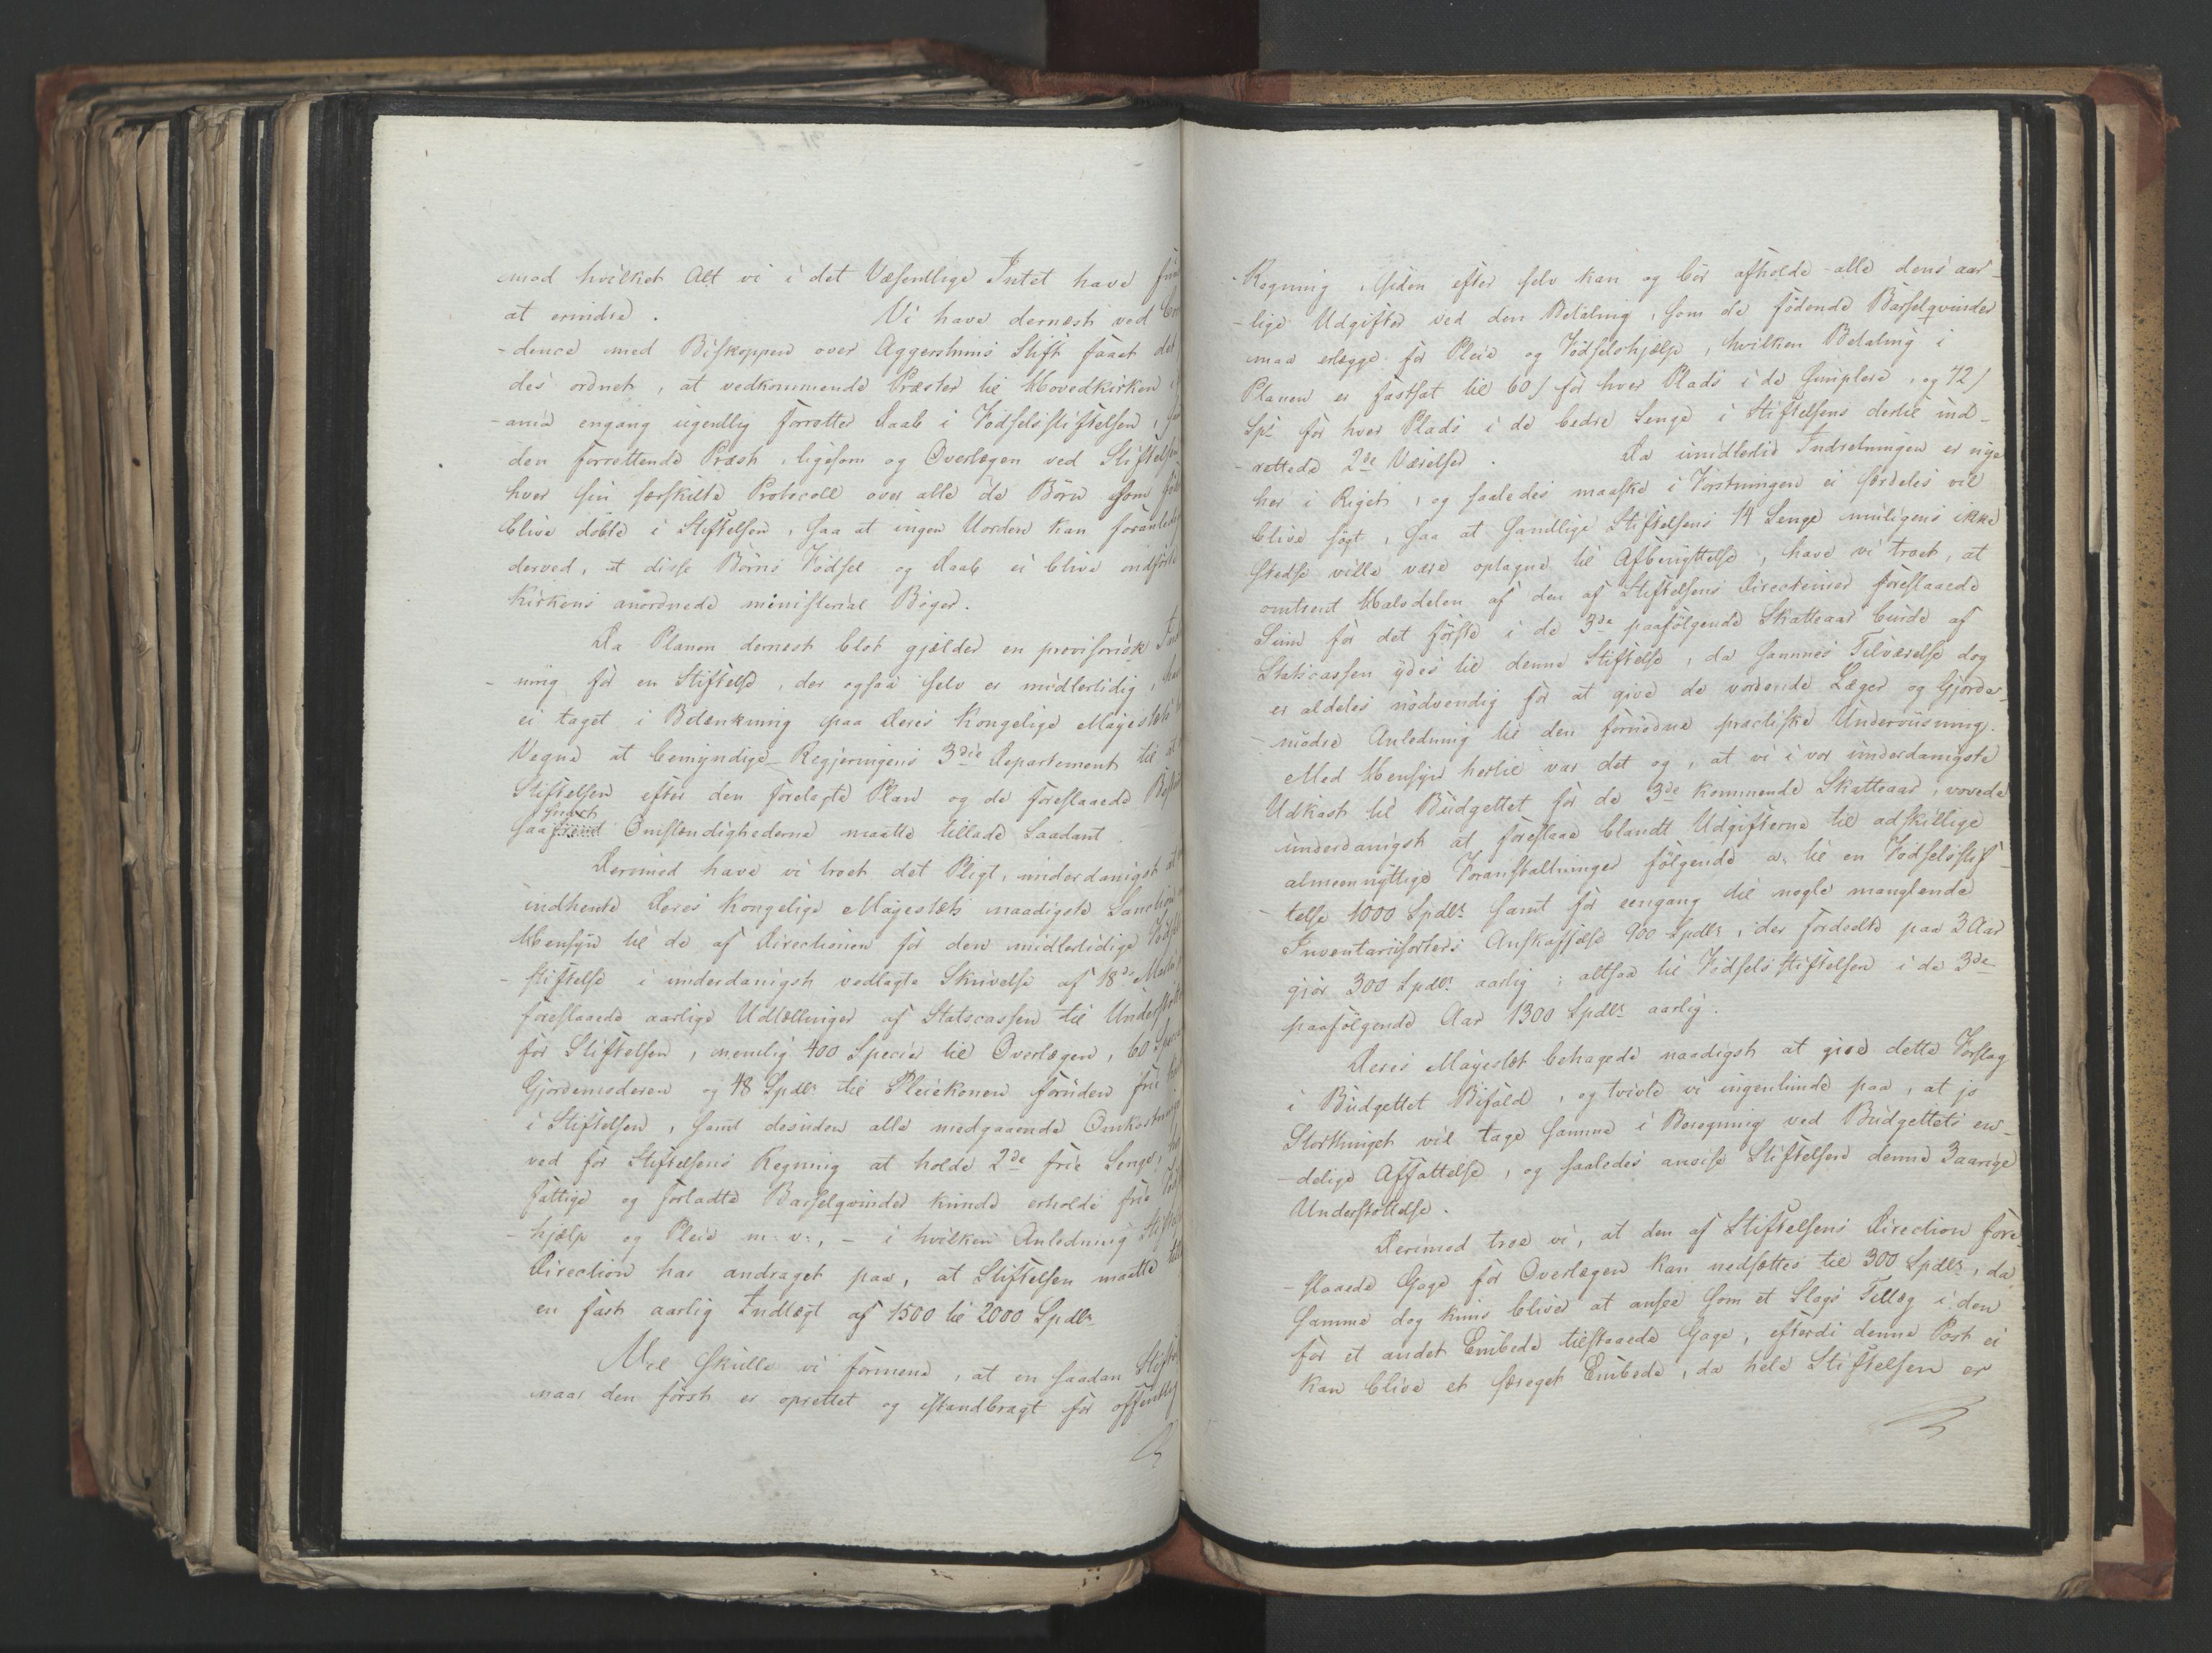 mod hvilket Alt vi i det Væsentlige Intet have
at erindre. Vi have dernæst ved
-dence med Biskoppen over Aggershuus Stift faaet det
des ordnet, at vedkommende Præster til Hovedkirken
engang ugentlig forretter Daab i Fødselsstiftelsen,
den forrettende Præst, ligesom og Overlægen ved Stiftelsen
hver sin særskilte Protocoll over alle de Børn som
blive døbte i Stiftelsen, saa at ingen Uorden kan foranledig
derved, at disse Børns Fødsel og Daab ei blive indførte
Kirkens anordnede ministerial Bøger.
Da Planen dernæst blot gjælder en provisorisk
-ning for en Stiftelse, der ogsaa selv er midlertidig,
ei taget i Betænkning paa Deres Kongelige Majestæts
Vegne at bemyndige Regjeringens 3die Departement til at
Stiftelsen efter den forelagte Plan og de foreslaaede
saasnart Omstændighederne maatte tillade Saadant.
Derimod have vi troet det Pligt, underdanigst at
indhente Deres Kongelige Majestæts naadigste Sanction
Hensyn til de af Directionen for den midlertidige
-stiftelse i underdanigst vedlagte Skrivelse af 18de
foreslaaede aarlige Udtællinger af Statscassen til
for Stiftelsen, nemlig 400 Specier til Overlægen, 60
Gjordemoderen og 48 Spdlr til Pleiekonen foruden frie
i Stiftelsen, samt desuden alle medgaaende Omkostninge
ved for Stiftelsens Regning at holde 2de frie Senge,
fattige og forladte Barselqvinder kunde erholde frie
-hjælp og Pleie m: v:, - i hvilken Anledning
Direction har andraget paa, at Stiftelsen maatte
en fast aarlig Indtægt af 1500 til 2000 Spdlr
Vel skulle vi formene, at en saadan
naar den først er oprettet og istandbragt for offentlig
-Regning, siden efter selv kan og bør afholde alle dens aar-
-lige Udgifter ved den Betaling, som de fødende Barselqvinder
maa erlægge for Pleie og Fødselshjælp, hvilken Betaling i
Planen er fastsat til 60 s for hver Plads i de simplere, og 72 s
Sps for hver Plads i de bedre Senge i Stiftelsens dertil ind-
-rettede 2de Værelser. Da imidlertid Indretningen er nye
her i Riget, og saaledes maaske i Førstningen ei særdeles vil
blive søgt, saa at samtlige Stiftelsens 14 Senge muligens ikke
stedse ville være optagne til Afbenyttelse, have vi troet, at
omtrent Halvdelen af den af Stiftelsens Directeurer foreslaaede
Sum for det første i de 3de paafølgende Skatteaar burde af
Statscassen ydes til denne Stiftelse, da sammes Tilværelse dog
er aldeles nødvendig for at give de vordende Læger og Gjorde-
-mødre Anledning til den fornødne practiske Underviisning.
Med Hensyn hertil var det og, at vi i vor underdanigste
Udkast til Budgettet for de 3de kommende Skatteaar, vovede
underdanigst at foreslaae blandt Udgifterne til adskillige
almeennyttige Foranstaltninger følgende a: til en Fødselsstif-
-telse 1000 Spdlr samt for eengang til nogle manglende
Inventariisorters Anskaffelse 900 Spdlr, der fordeelte paa 3 Aar
gjør 300 Spdlr aarlig; altsaa til Fødselsstiftelsen i de 3de
paafølgende Aar 1300 Spdlr aarlig.
Deres Majestæt behagede naadigst at give dette Forslag
i Budgettet Bifald, og tvivle vi ingenlunde paa, at jo
Storthinget vil tage samme i Beregning ved Budgettets en-
-delige Affattelse, og saaledes anvise Stiftelsen denne 3aarige
Understøttelse.
Derimod troe vi, at den af Stiftelsens Direction fore-
-slaaede Gage for Overlægen kan nedsættes til 300 Spdlr, da
samme dog kuns bliver at ansee som et Slags Tillæg i den
for et andet Embede tilstaaede Gage, efterdi denne Post ei
kan blive et særeget Embede, da hele Stiftelsen er